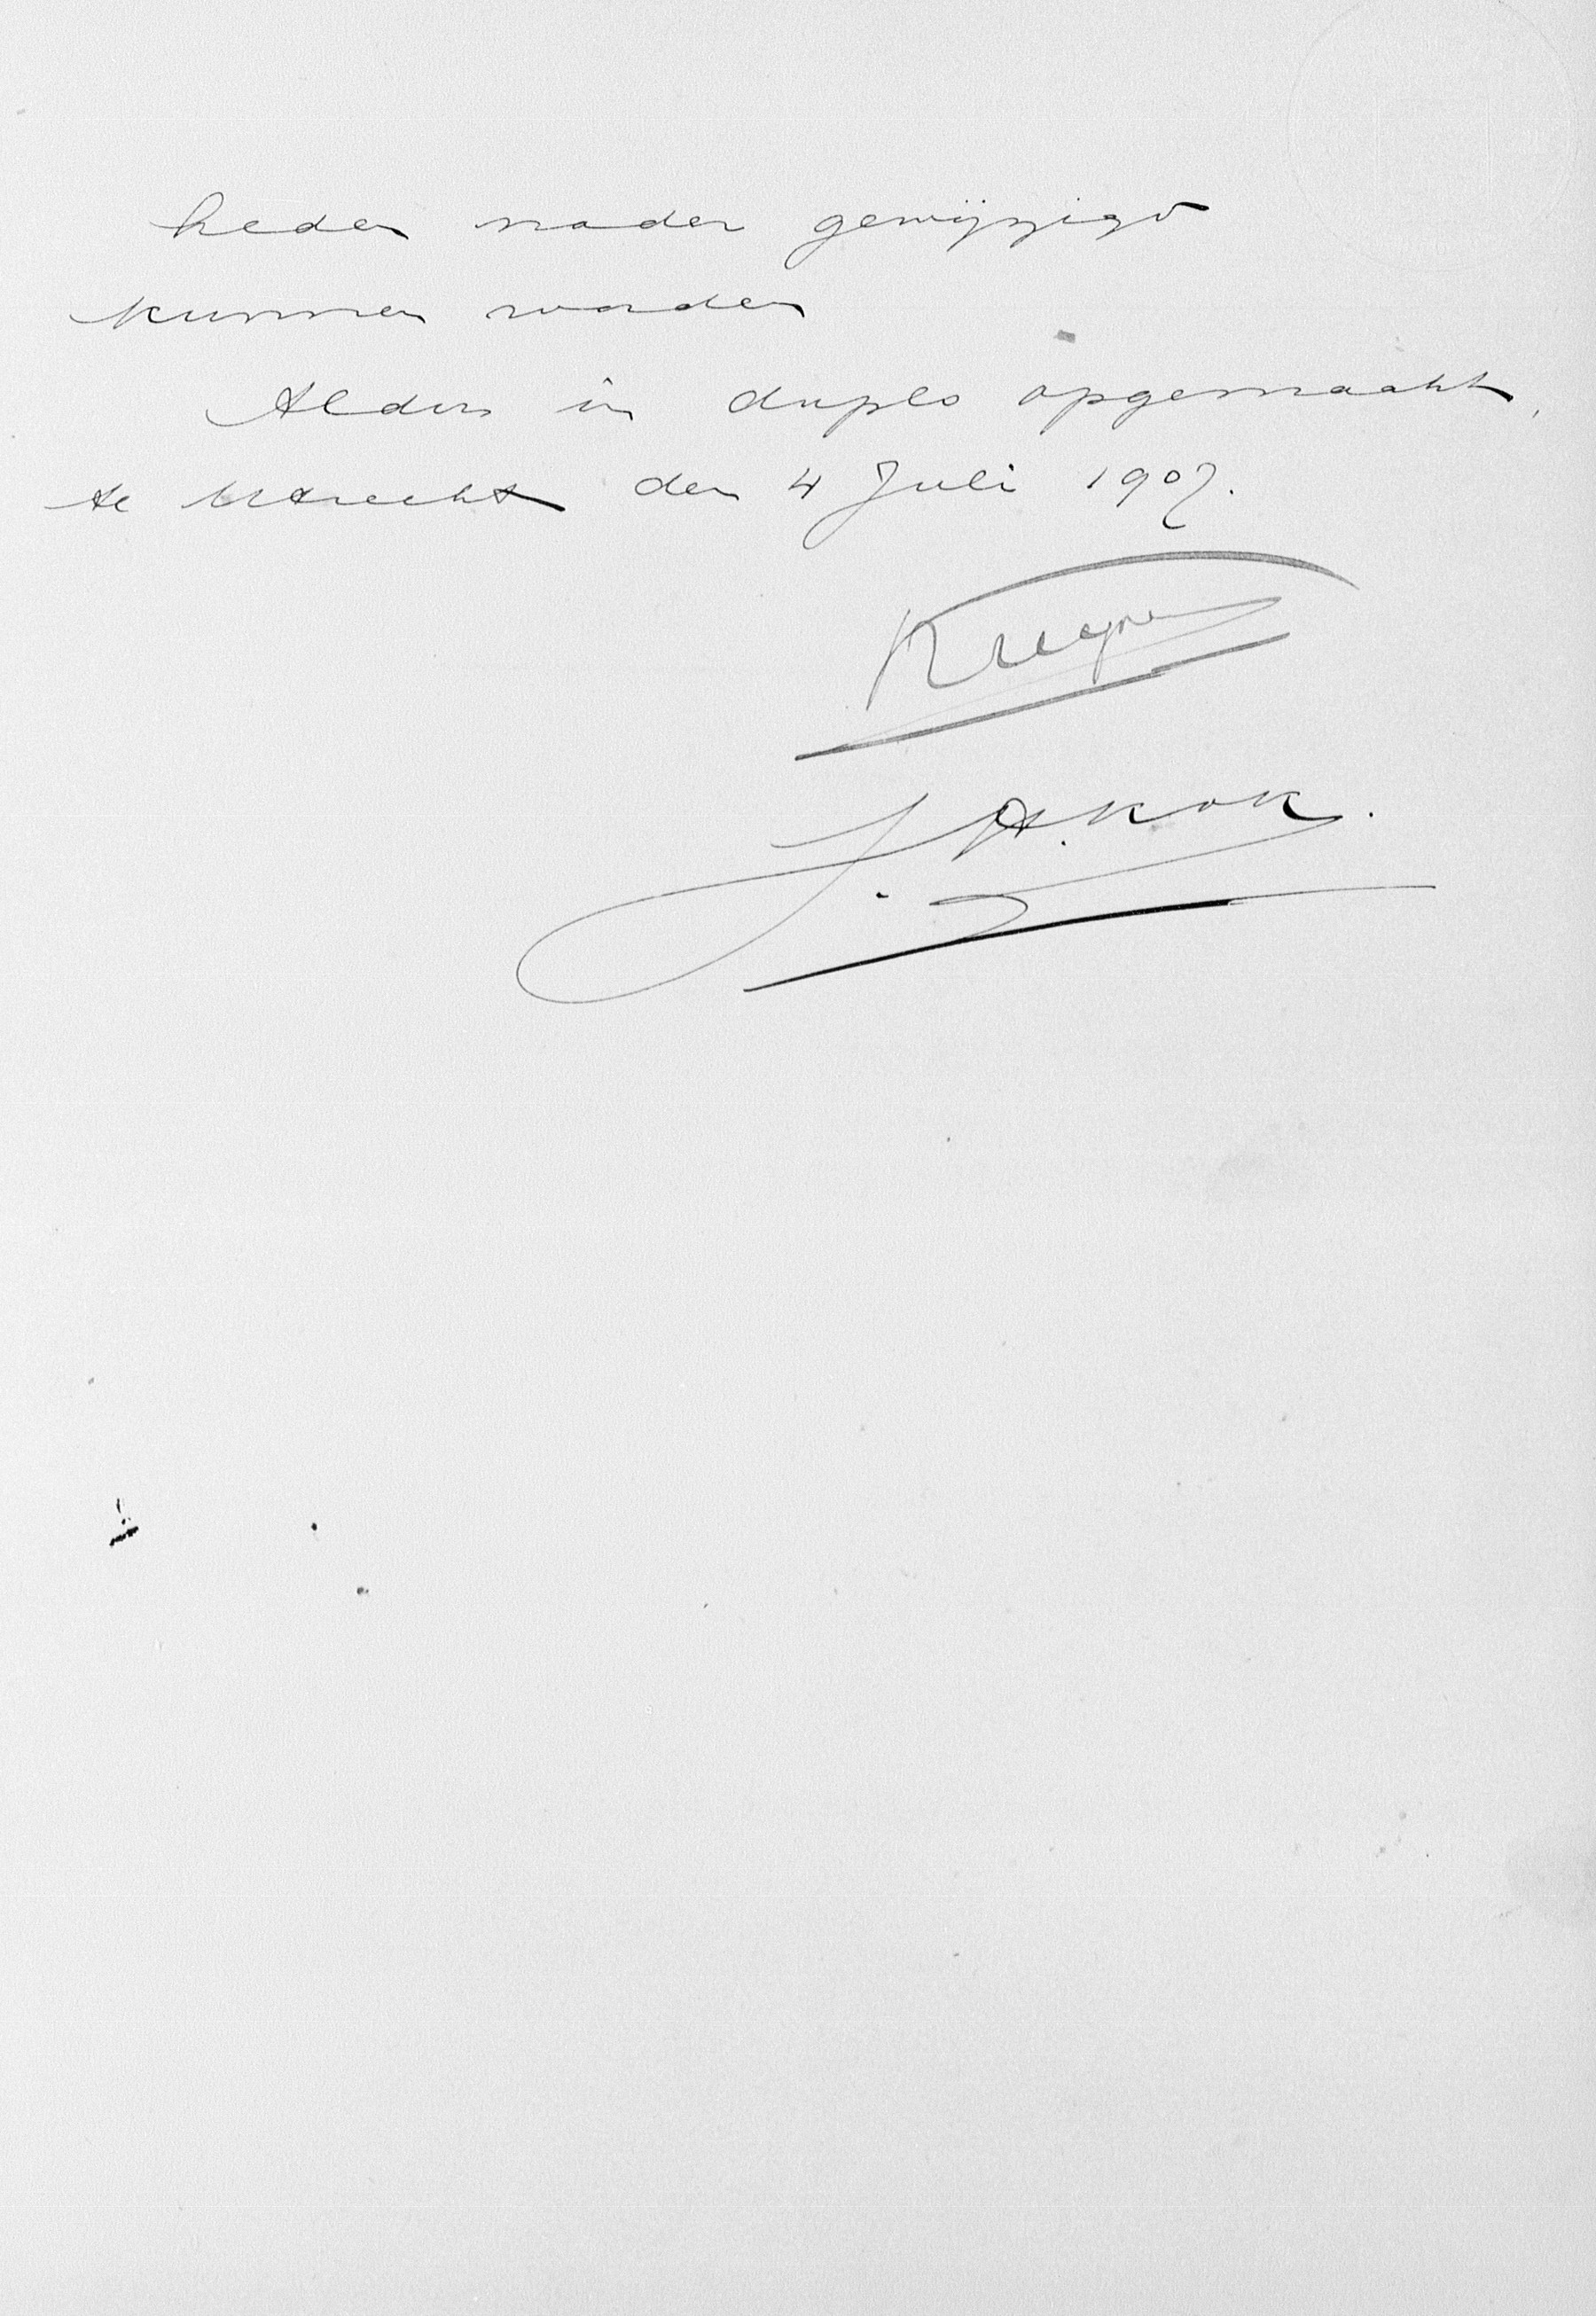 heden nader gewijzigd
kunnen worden
Aldus in duplo opgemaakt,
te Utrecht den 4 Juli 1907.
J. A. Kok.